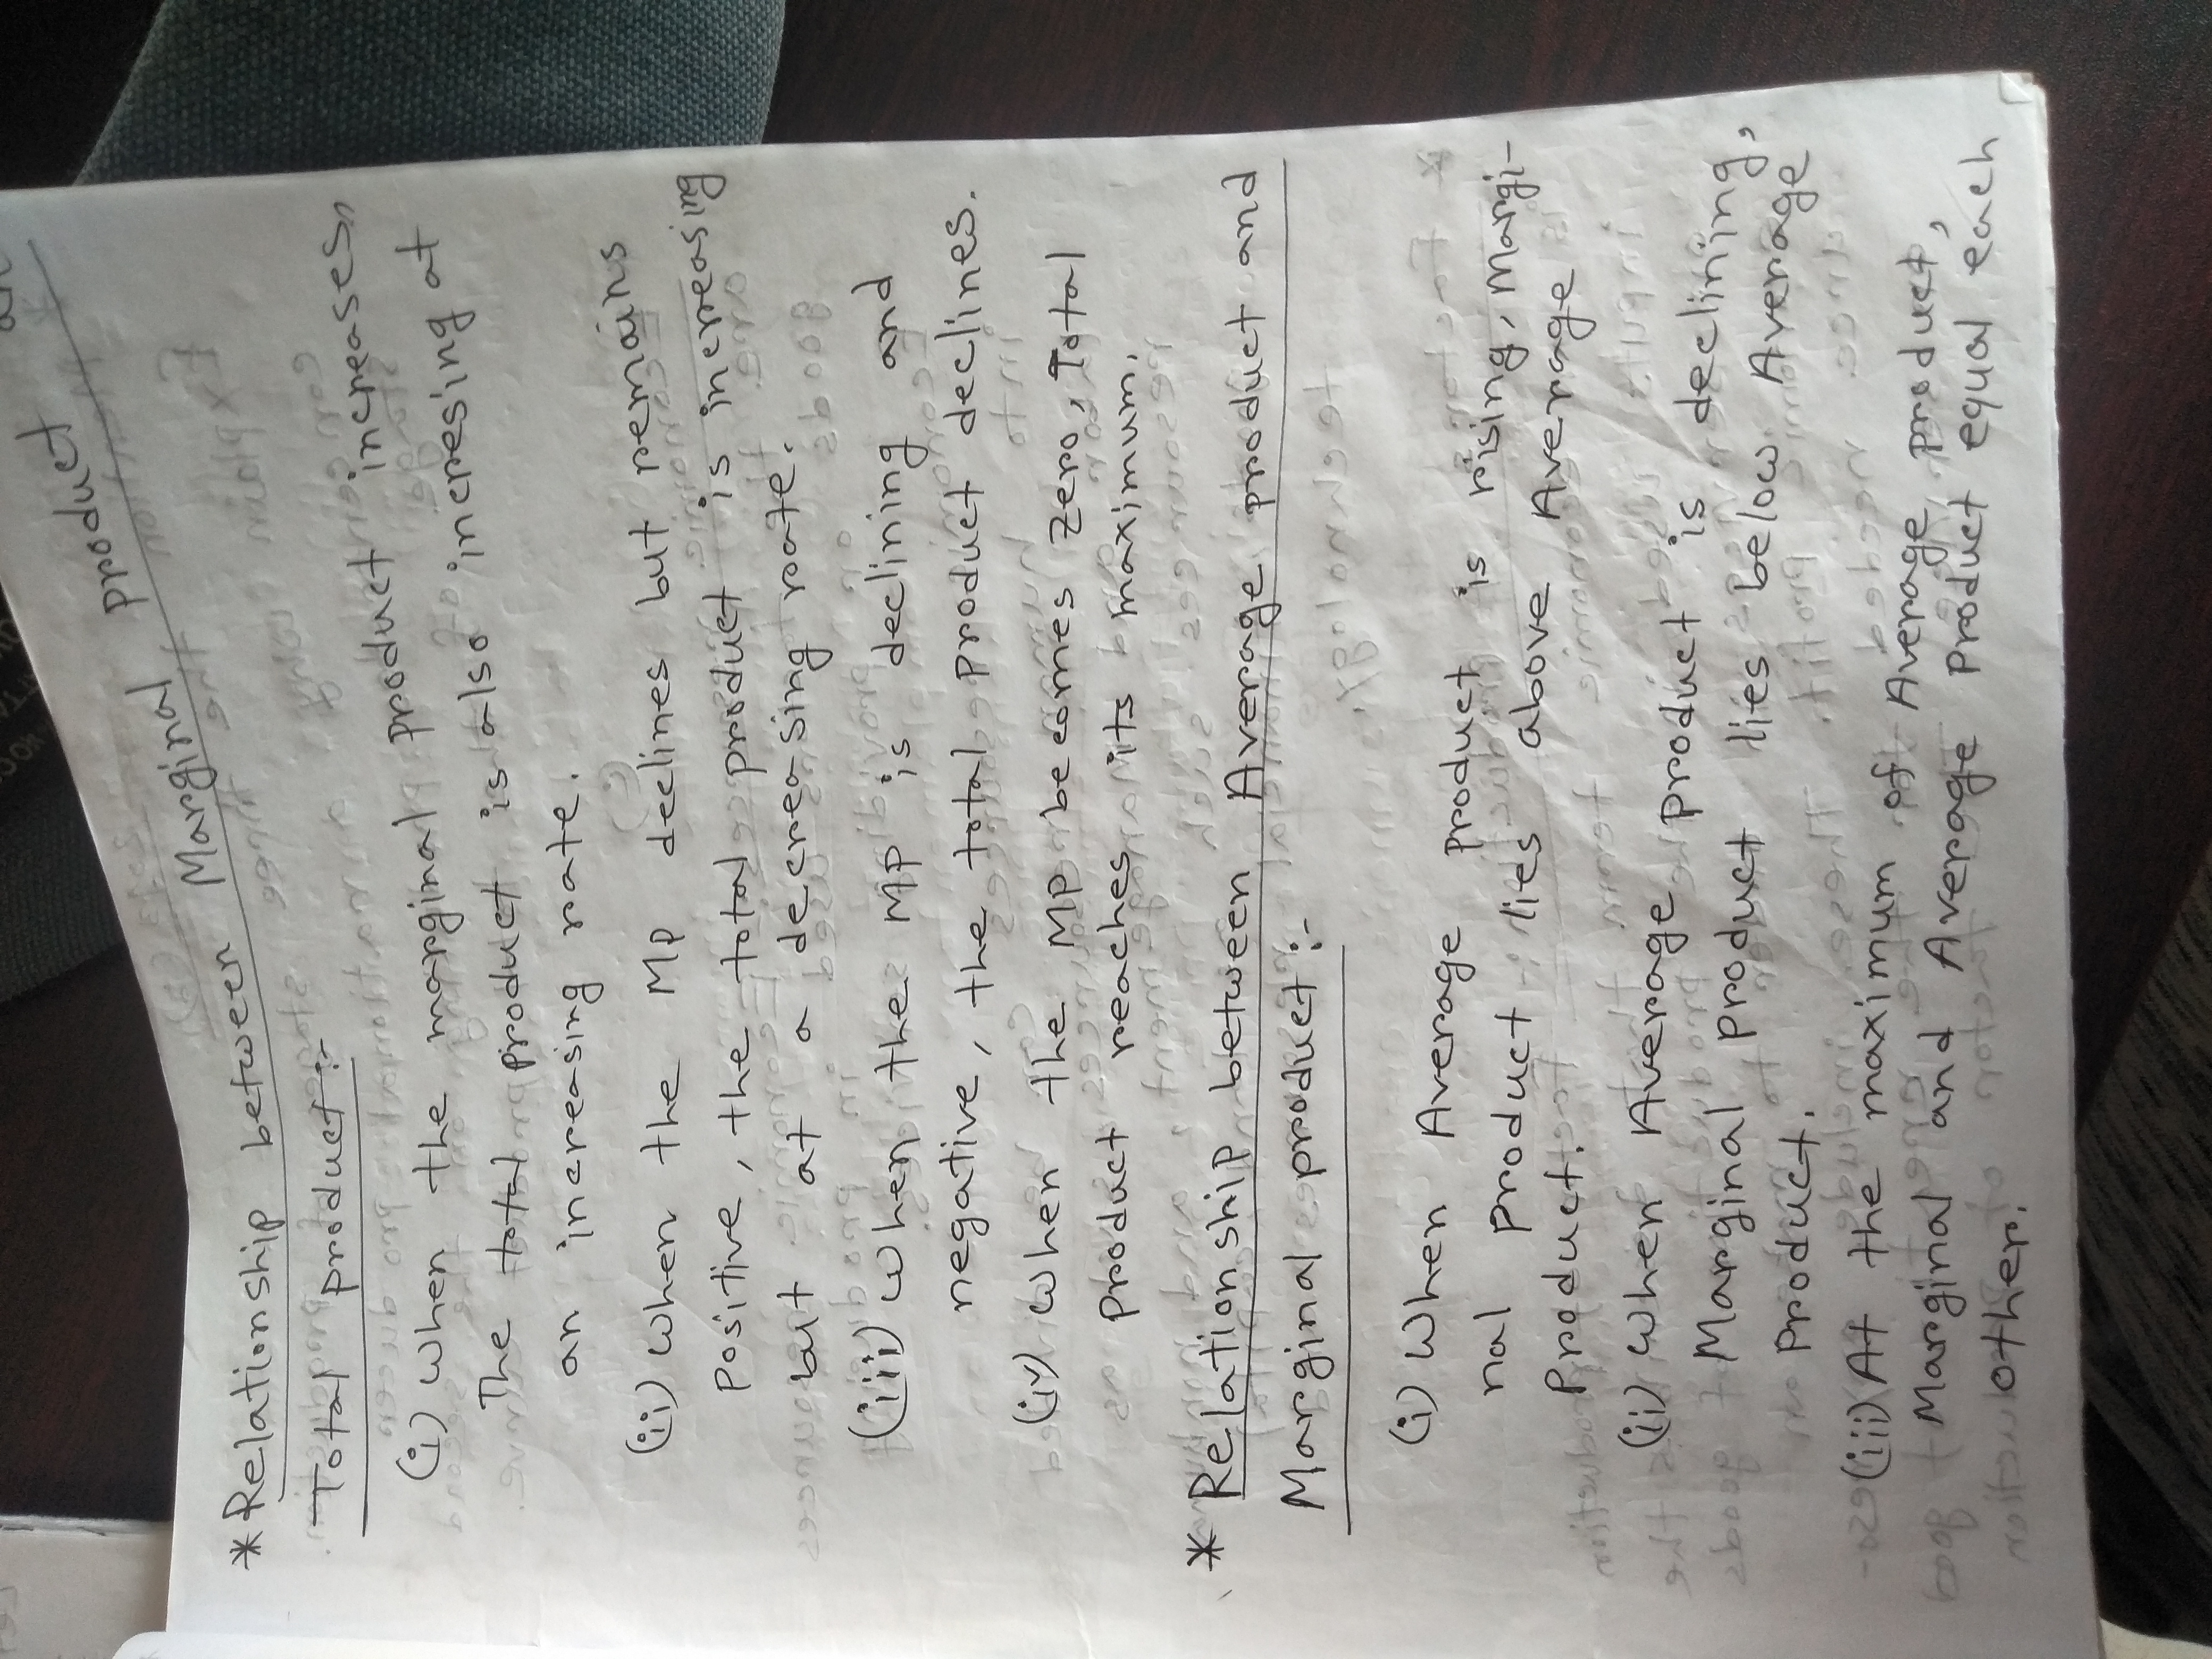 * Relationship between Marginal product an
Total product:-
(i) When the marginal product increases,
The total product is also incresing at
an increasing rate.
(ii) When the MP declines but remains
positive, the total product is increasing
but at a decreasing rate.
(iii) When the MP is declining and
negative, the total product declines.
(iv) When the MP becomes zero, Total
product reaches its maximum.
* Relationship between Average product and
Marginal product:-
(i) When Average product is rising, Margi-
nal product lies above Average
Product.
(ii) When Average product is declining,
Marginal product lies below Average
Product.
(iii) At the maximum of Average product,
Marginal and Average Product equal each
other.